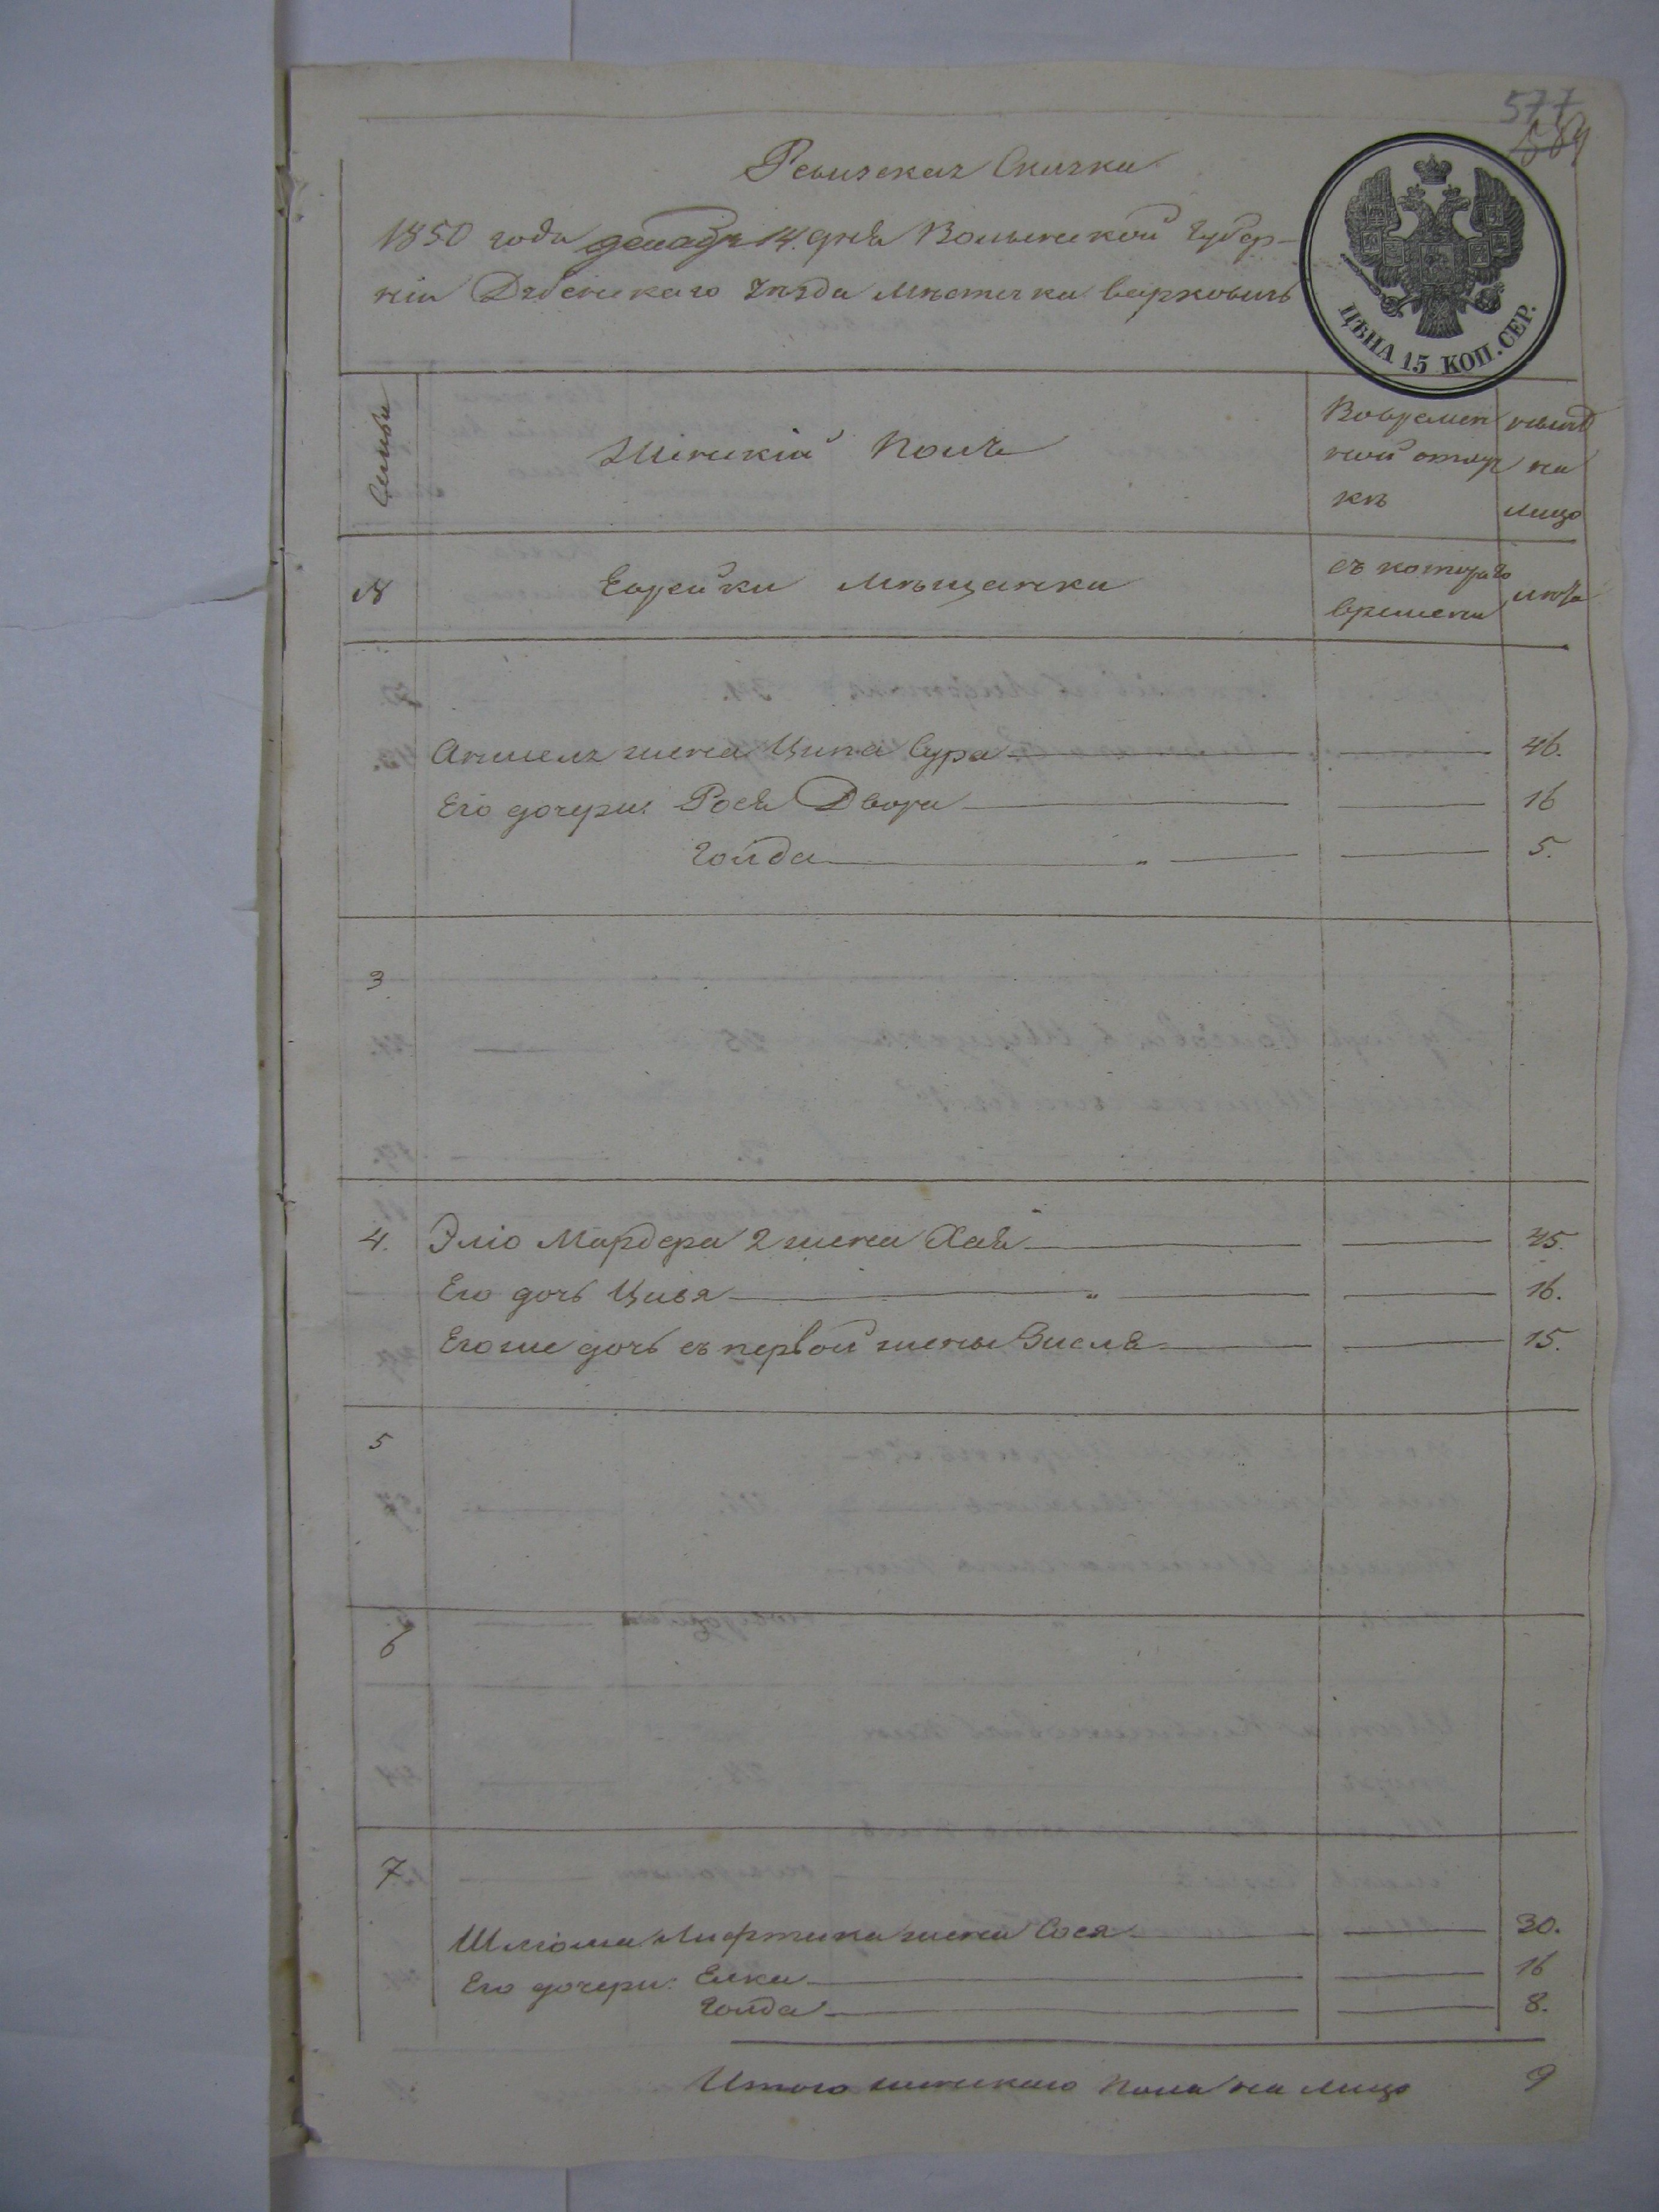 577
Ревизская Скичка
1850 года декабря 14. дня Волынской Губер-
ніи Дубенскаго Уѣзда Мѣстечка Варковичь
ЦѢНА 15 КОП. СЕР.
Семьи
Женскій Полъ
Во времен
ной отлуч
кѣ
нынѣ
на
лицо
№
Еврейки мѣщанки
съ котораго
времени
лѣта
Аншеля жена Ципа Сура 46.
Его дочери: Рося Двора 16
Голда 5.
3
4. Эліо Мардера 2 жена Хая 45.
Его дочь Цивя 16.
Егоже дочь съ первой жены Зисля 15.
5
6
7
Шліома Лифтика жена Сося 30.
Его дочери: Елка 16
Голда 8.
Итого женскаго пола на лицо 9